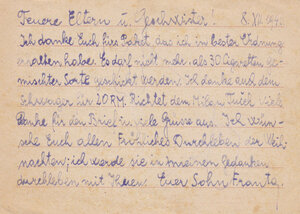 Teuere Eltern u. Geschwister! 8. XII. 1944.
Ich danke Euch fürs Paket, das ich in bester Ordnung
erhalten habe. Es darf nicht mehr, als 30 Zigaretten ge-
mischter Sorte geschickt werden. Ich danke auch dem
Schwager für 20 RM. Richtet dem Milo u. viele
Danke für den Brief u. viele Grüsse aus. Ich wün-
sche Euch allen Fröhliches Durchleben der Weih-
nachten; ich werde sie in meinen Gedanken
durchleben mit Ihnen. Euer Sohn Franta.